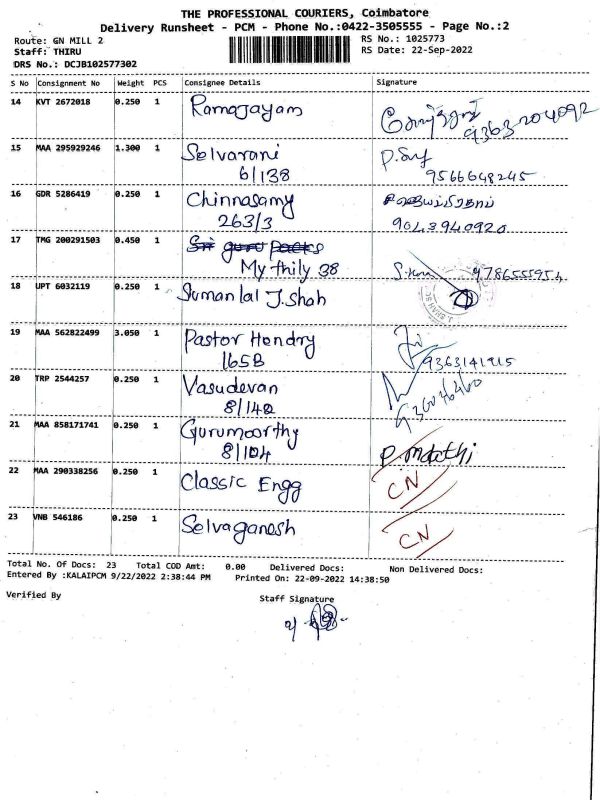 THE PROFESSIONAL COURIERS, Coimbatore
Delivery Runsheet - PCM - Phone No.:0422-3505555 - Page No.:2
Route: GN MILL 2 RS No.: 1025773
Staff: THIRU RS Date: 22-Sep-2022
DRS No.: DCJB102577302
S No Consignment No Weight PCS Consignee Details Signature
14 KVT 2672018 0.250 1 Ramajayam
9363204092
15 MAA 295929246 1.300 1 Selvarani
6/138 9566648245
16 GDR 5286419 0.250 1 Chinnasamy
263/3 9043940920
17 TMG 200291503 0.450 1 Sri guru packs
My thily 38 9786555954
18 UPT 6032119 0.250 1 Sumanlal J. Shah
19 MAA 562822499 3.050 1 Pastor Hendry
165B 9363141915
20 TRP 2544257 0.250 1 Vasudevan
8/142
21 MAA 858171741 0.250 1 Gurumoorthy
8/104
22 MAA 290338256 0.250 1 Classic Engg CN
23 VNB 546186 0.250 1 Selvaganesh CN
Total No. Of Docs: 23 Total COD Amt: 0.00 Delivered Docs: Non Delivered Docs:
Entered By :KALAIPCM 9/22/2022 2:38:44 PM Printed On: 22-09-2022 14:38:50
Verified By Staff Signature